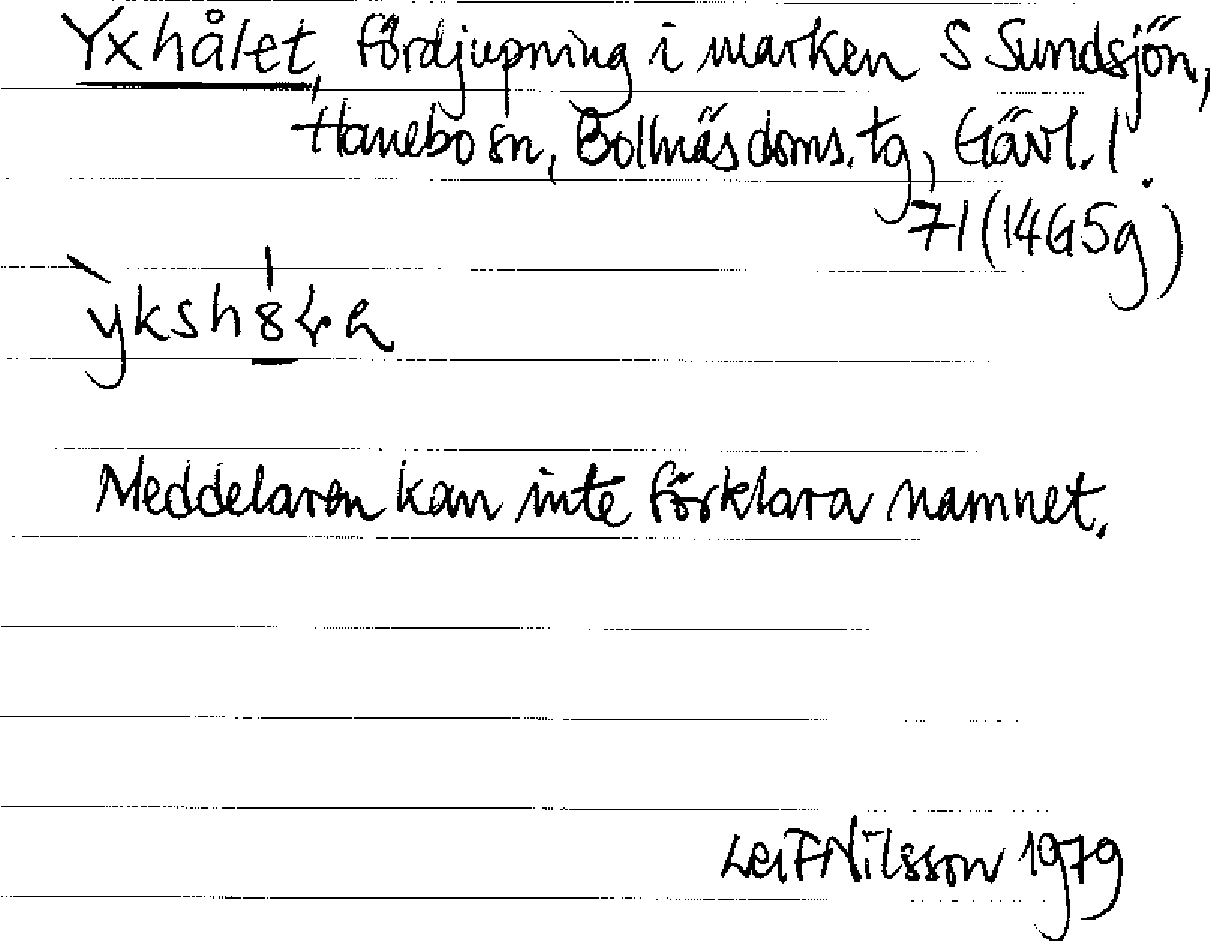 Yxhålet, fördjupning i marken S Sundsjön,
Hanebo sn, Bollnäs doms. tg, Gävl. l.
71 (14G5g)
Meddelaren kan inte förklara namnet.
Leif Nilsson 1979